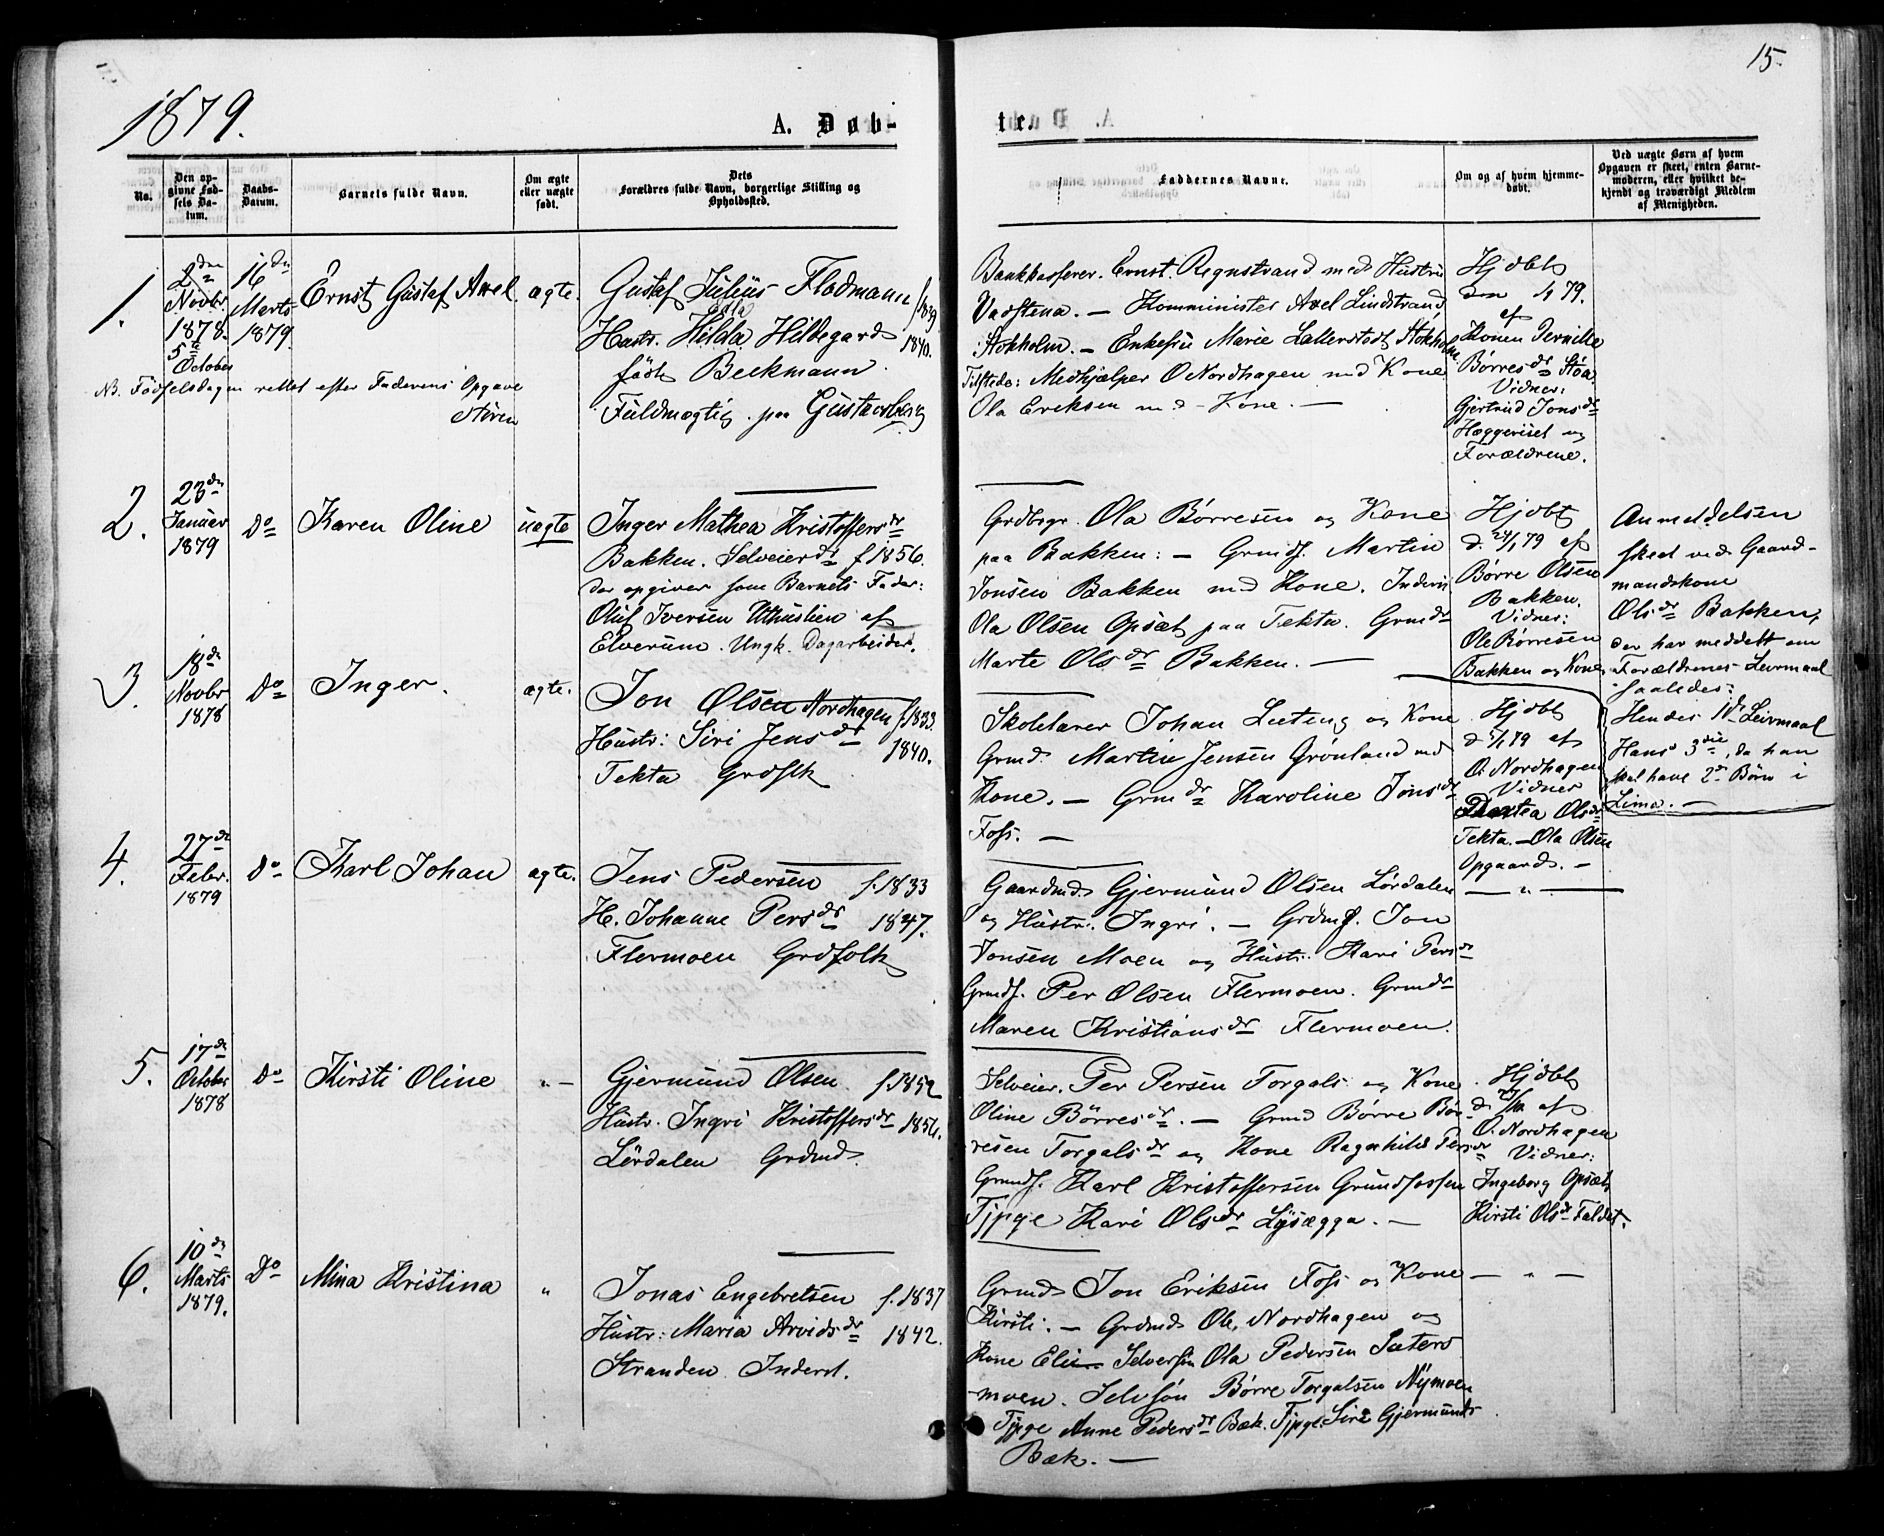 15.
1879.
A. Døb-
te.
No.
Den op-
givne Fød-
sels Da-
tum.
Daabs-
Datum.
Barnets fulde Navn.
Om ægte
eller uægte
født.
Dets
Forældres fulde Navn, borgerlige Stilling og
Opholdssted.
Faddernes Navne.
Om og af hvem hjemme-
døbt.
Ved uægte Børn af hvem
Opgaven er skeet, enten Barne-
moderen, eller hvilket be-
kjendt og troværdigt Medlem
af Menigheden.
1.
2den
Novbr
1878.
5te
October
16de
Marts
1879.
Ernst Gustaf Axel
ægte.
Gustaf Julius Flodmann
Hustr. Hilda Hildegard 1840.
født Beckmann.
Fuldmægtig paa Gustavsberg
NB. Fødselsdagen rettet efter Faderens Opgave
Støren
Bankkasserer Ernst Regnstrand med Hustru
Vadstena. — Komminister Axel Lindstrand,
Stokholm. — Enkefru Marie Lallerstedt Stokholm.
Tilstede: Medhjælper O Nordhagen med Kone
Ola Eriksen med Kone. —
Hjdbt
den 79.
af
Konen Pernille
Børresdr Støa
Vidner:
Gjertrud Jonsdr
Hæggeriset og
Forældrene.
2.
23de
Januar
1879
Do
Karen Oline
uægte
Inger Mathea Kristoffersdr
Bakken. Selveierdr f 1856.
der opgiver som Barnets Fader:
Oluf Iversen Uthuslien af
Elverum. Ungk. Dagarbeider.
Grdbrgr. Ola Børresen og Kone
paa Bakken: — Grmdf. Martin
Jonsen Bakken med Kone. Inders
Ola Olsen Opsæt paa Tekta. Grmdr
Marte Olsdr Bakken. —
Hjdbt
d. 24/1 79 af
Børre Olsen
Bakken.
Vidner:
Ole Børresen
Bakken og Kone
Anmeldelsen
skeet ved Gaard-
mandskone
Olsdr Bakken,
der har meddelt om
Forældrenes Leirmaal
saaledes:
Hendes 1ste Leirmaal
Hans 3die, da han
skal have 2de Børn i
Lima. —
3.
18de
Novbr
1878
Do
Inger.
ægte.
Jon Olsen Nordhagen f 1833.
Hustr: Siri Jensdr 1840.
Tekta Grdflk
Skolelærer Johan Læteng og Kone
Grmd. Martin Jensen Grønland med
Kone. — Grmdr Karoline Jonsdr
Foss. —
Hjdbt
d. 5/1 79 af
O. Nordhagen
Vidner
Olsdr
Tekta. — Ola Olsen
Opgaard. —
4.
27de
Febr.
1879
Do
Karl Johan
ægte.
Jens Pedersen f. 1833
H. Johanne Persdr 1847.
Flermoen Grdfolk
Gaardmd. Gjermund Olsen Lørdalen
og Hustr. Ingri. — Grdmf. Jon
Jonsen Moen og Hustr. Kari Persdr
Grmdf. Per Olsen Flermoen. Grmdr
Maren Kristiansdr Flermoen.
— " —
5.
17de
October
1878
Do
Kirsti Oline
" —
Gjermund Olsen f. 1852
Hustr. Ingri Kristoffersdr 1854.
Lørdalen Grdmd.
Selveier. Per Persen Torgals og Kone
Oline Børresdr. — Grmd Børre Bør-
resen Torgalsdr og Kone Ragnhild Persdr
Grmdf. Karl Kristoffersen Grundfossen
Tjpge Kari Olsdr Lysægga. —
Hjdbt
d. af
O. Nordhagen
Vidner:
Ingeborg Opsæt
Kirsti Olsdr Faldet.
6.
10de
Marts
1879.
Do
Mina Kristina
"
Jonas Engebretsen f. 1837
Hustr: Maria Arvidsdr 1842.
Stranden Inderst.
Grmd Jon Eriksen Foss og Kone
Kirsti. — Grdmd Ole Nordhagen og
Kone Eli Selversøn Ola Pedersen Sæters
moen. Selvsøn Børre Torgalsen Nymoen
Tjpge Anne Pedersdr Bæk. Tjpge. Siri Gjermunds
Bæk. —
— " —